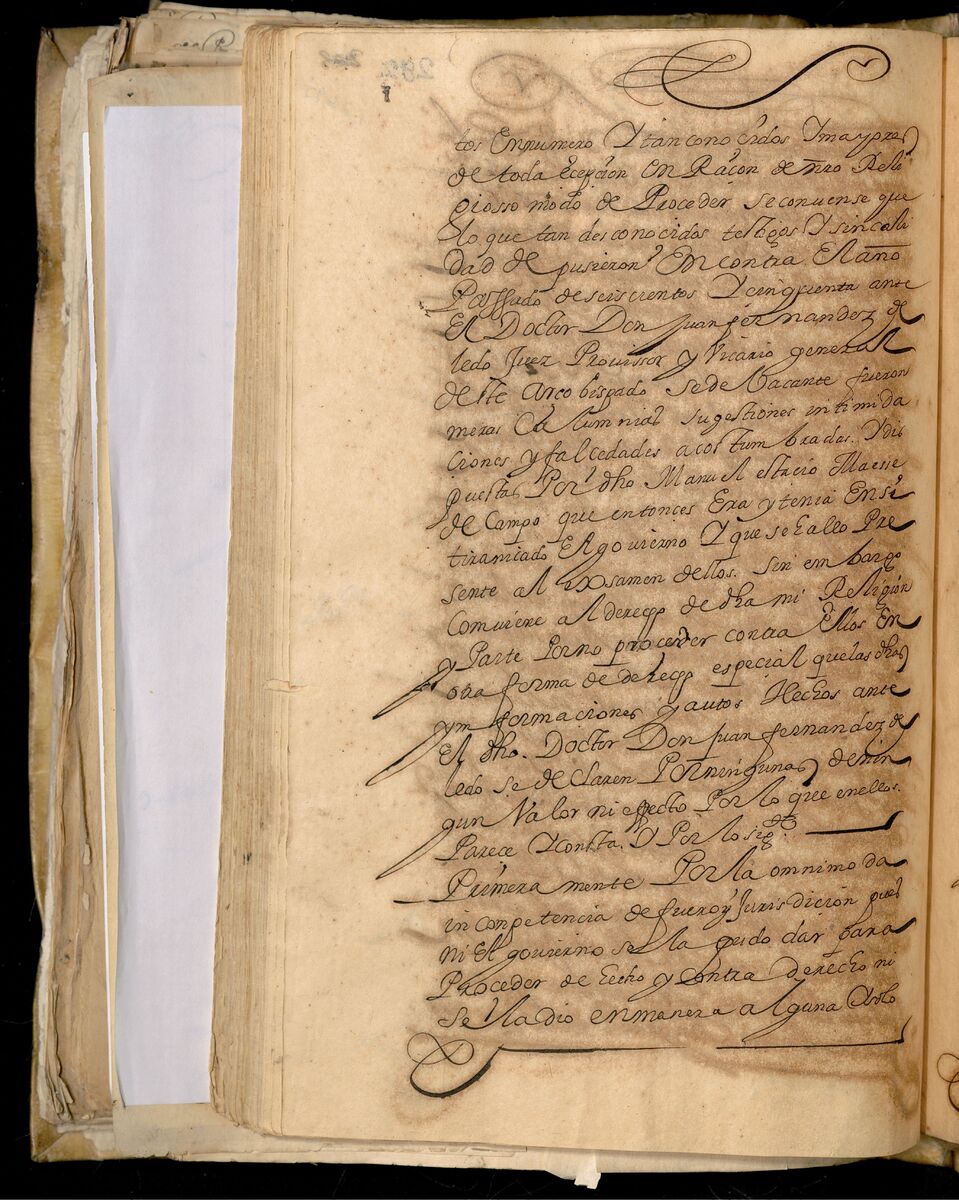 tos En numero Y tan cono cidos Y mayores
de toda ecepcion En Raçon de nro Reli
giosso modo de Proceder se conuense que
lo que tan desconocidos testigos Y sin cali
dad de pusieron En contra El año
Passado de seiscientos Y cinquenta ante
El Doctor Don Juan fernandez de
ledo Juez Prouissor y Vicario general
deste arcobispado sede Bacante fueron
meras Calumnias sugestiones intimida
ciones y falcedades acostumbradas. Y dis
puestas Por dho Manuel estacio Maese
de Campo que entonces Era y tenia En si
tiranicado El gouierno Y que se hallo Pre
sente al Exsamen dellos. Sin em bargo
Comuiene al derecho de dha mi Religion
y Parte Por no proceder contra Ellos En
otra forma de derecho especial que las dhas
ynformaciones y autos Hechos ante
El dho. Doctor Don Juan fernandez de
ledo se de Claren Por ningunas de nin
gun Valor ni effecto Por lo que en ellos.
Parece Y consta. Y Por lo sigte
Primera mente Por la omnimoda
in conpetencia de fuero y Jurisdicion pues
ni El gouierno se la pudo dar para
Proceder de hecho y contra derecho ni
se la dio en manera alguna Y solo